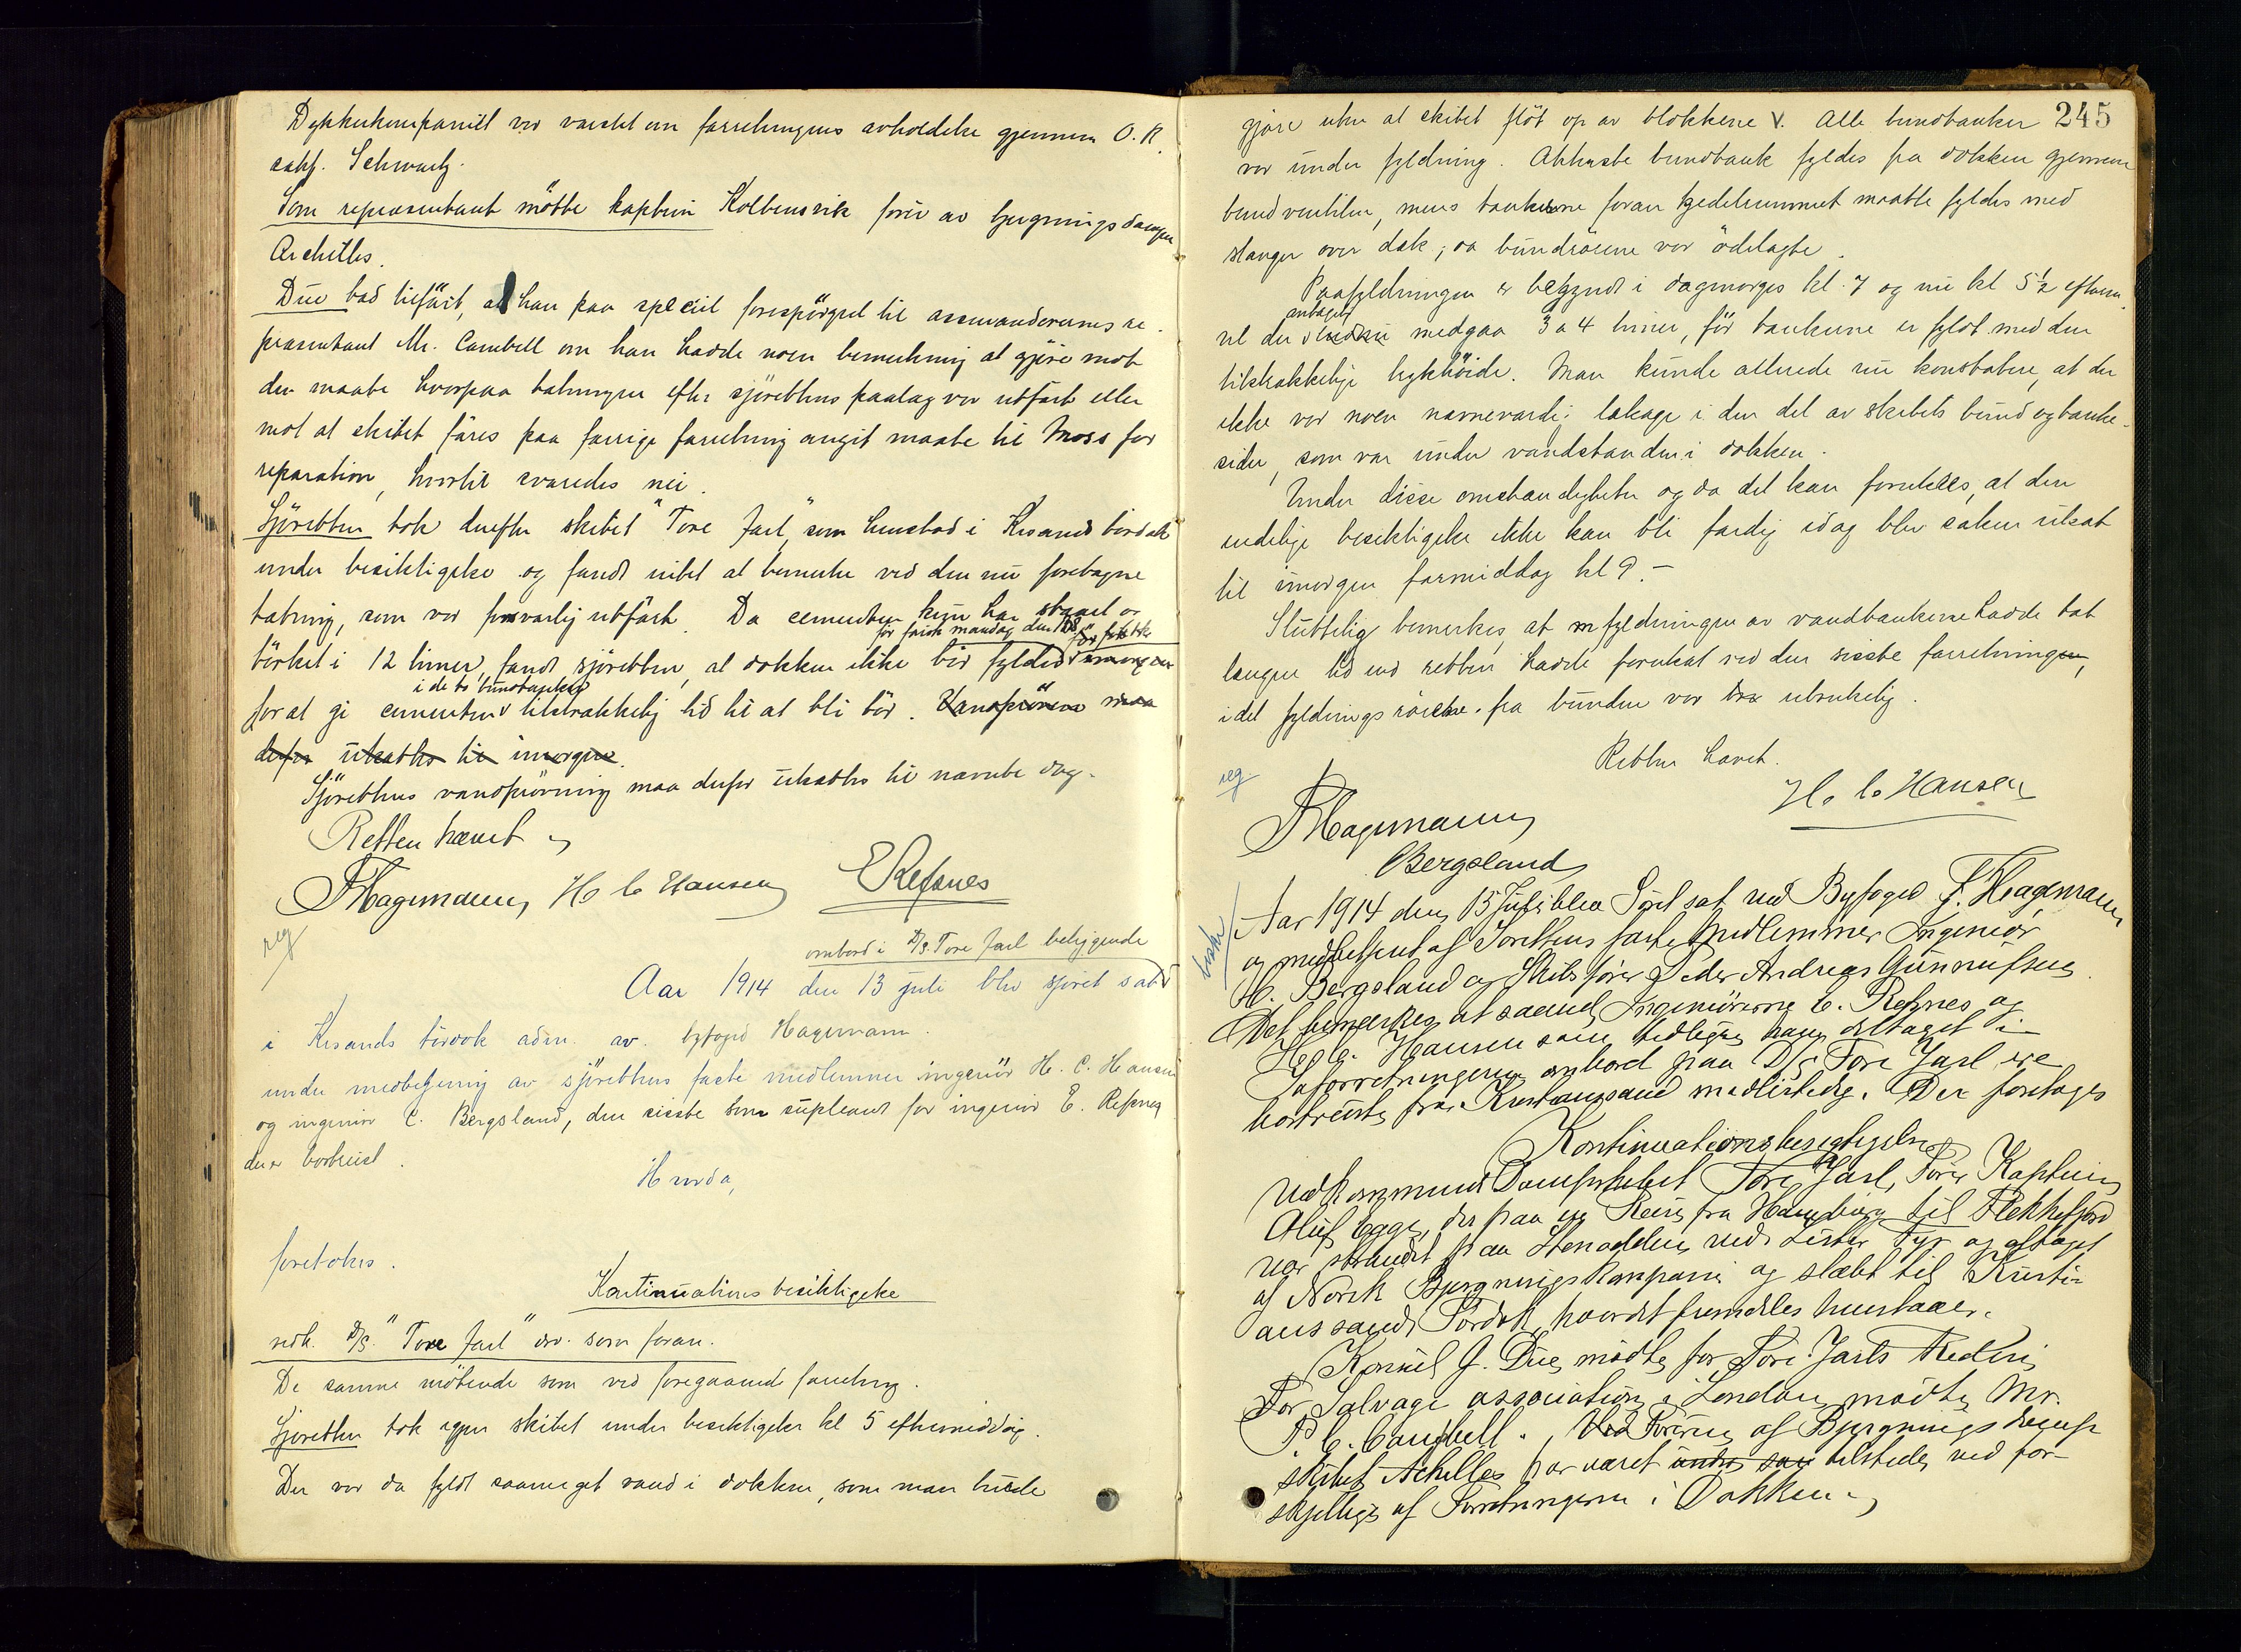 Dykkerkompaniet var varslet om forretningens avholdelse gjennem O.R.
sakf. Schwartz.
Som repræsentant møtte kaptein Kolbensvik fører av bjergningsdampen
Archilles.
Due bad tilføit, at han paa speciel forespørgsel til assurandørernes re-
præsentant Mr. Cambell om han hadde noen bemerkning at gjøre mot
den maate hvorpaa tætningen efter sjørettens paalæg var utført eller
mot at skibet føres paa forrige forretning angit maate til Moss for
reparation, hvortil svaredes nei.
Sjøretten tok derefter skibet "Tore Jarl" som henstod i Krsands tørdok
under besiktigelse og fandt intet at bemerke ved den nu foretagne
tætning, som var forsvarlig utført. Da cementen kun har staaet og
før først mandag den 13
tørket i 12 timer, fandt sjøretten, at dokken ikke bør fyldes imorgen
i de to bundtanker
for at gi cementen v tilstrækkelig tid til at bli tør. Vandprøven maa
derfor utsættes til imorgen.
Sjørettens vandprøvning maa derfor utsættes til nævnte dag.
Retten hævet
F Hagemann H C Hansen E Refsnes
reg
ombord i D/S. Tore Jarl beliggende
Aar 1914 den 13 juli blev sjøret sat v
i Krsands tørdok adm. av. byfoged Hagemann.
under medbetjening av sjørettens faste medlemmer ingeniør H. C. Hansen
og ingeniør C. Bergsland, den sidste som supleant for ingeniør E. Refsnes
der er bortreist.
Hvorda,
foretokes.
Kontinuations besiktigelse
vedk. D/S. "Tore Jarl" osv. som foran.
De samme møtende som ved foregaaende forretning.
Sjøretten tok igjen skibet under besiktigelse kl 5 eftermiddag.
Der var da fyldt saameget vand i dokken, som man turde
245
gjøre uten at skibet fløt op av blokkene v. Alle bundtanker
var under fyldning. Akterste bundtank fyldes fra dokken gjennem
bundventilen, mens tankerne foran kjedelrummet maatte fyldes med
slanger over dæk, da bundrørene var ødelagte.
Paafyldningen er begyndt i dagmorges kl. 7 og nu kl 5½ efterm.
antagelig
vil der v endnu medgaa 3 a 4 timer, før tankerne er fyldt med den
tilstrækkelige trykhøide. Man kunde allerede nu konstatere, at der
ikke var noen nævneværdig lækage i den del av skibets bund og tanke-
sider, som var under vandstanden i dokken.
Under disse omstændigheter og da det kan forutsees, at den
endelige besiktigelse ikke kan bli færdig idag blev saken utsat
til imorgen formiddag kl 9.-
Sluttelig bemerkes, at fyldningen av vandtankerne hadde tat
længere tid end retten hadde forutsat ved den sidste forretningen,
idet fyldningsrørene fra bunden var ubrukelig.
Retten hævet.
reg
H. C. Hansen
F Hagemann
Bergsland
Aar 1914 den 15 Juli blev Søret sat ved Byfoged F. Hagemann
og medbetjent af Sørettens faste Medlemmer Ingeniør
H. Bergsland og Skibsfører Peder Andreas Gunnufsen.
Det bemærkes, at saavel Ingeniørerne E. Refsnes og
H. C. Hansen som tidligere have deltaget i
Søforretningerne ombord paa D/S Tore Jarl ere
bortreiste fra Kristianssand midlertidig. Der foretages
Kontinuationsbesigtigelse
vedkommende Dampskibet Tore Jarl, Fører Kaptein
Oluf Egge, der paa en Reise fra Hamburg til Flekkefjord
var strandet paa Stenodden ved Lister Fyr og aftaget
af Norsk Bjergningskompani og slæbt til Kristi-
anssands Tørdok, hvor det fremdeles henstaaer.
Konsul J. Due mødte for Tore Jarls Rederi
For Salvage association i London mødte Mr.
P. C. Campbell. Ved Føreren af Bjergningsdamp
skibet Achilles har været under sag tilstede ved for-
skjellige af Forretningerne i Dokken.